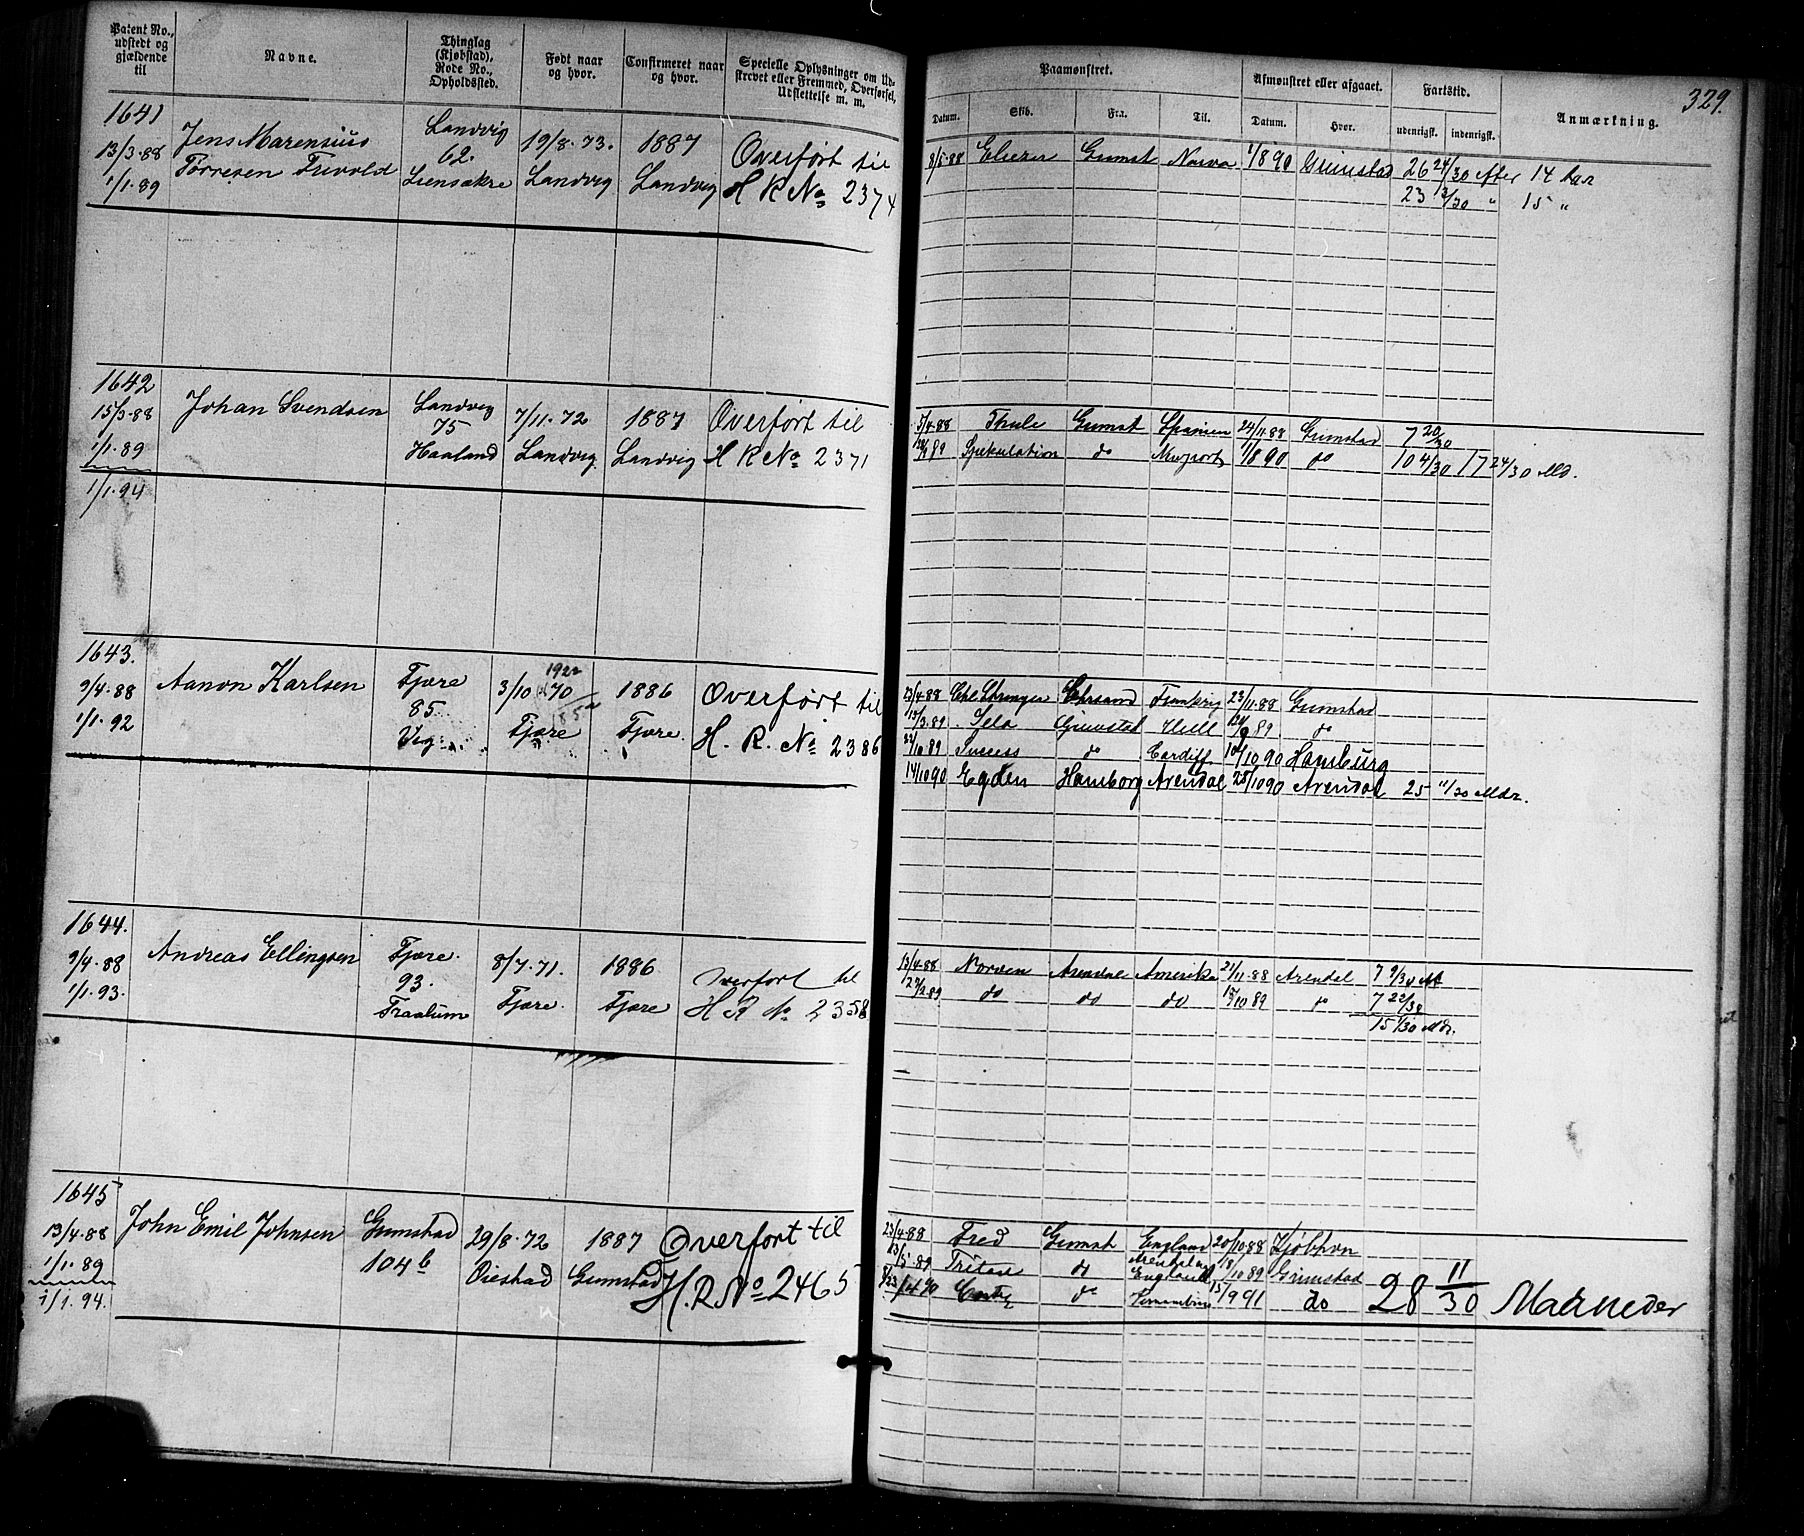 Patent No., udstedt og gjældende til
Navne.
Thinglag (Kjøbstad), Rode No., Opholdssted.
Født naar og hvor.
Confirmeret naar og hvor.
Specielle Oplysninger om Udskrevet eller Fremmed, Overførsel, Udslettelse m. m.
Paamønstret.
Afmønstret eller afgaaet.
Fartstid.
Anmærkning.
329.
Datum.
Skib.
Fra.
Til.
Datum.
Hvor.
udenrigsk.
indenrigsk.
1641
13/3.88
1/1.89
Jens Marensius
Torresen Trevold
Landvig
62.
Liensakre
19/8.73.
Landvig
1887
Landvig
Overført til
H R No 2374
8/5.88 Eliezer Grimst Narva 1/8 90 Grimstad 26 24/30 efter 14 Aar
23 3/30 " 15 "
1642
15/3.88
1/1.89
1/1.94
Johan Svendsen
Landvig
75
Haaland
7/11.72
Landvig
1887
Landvig
Overført til
H R No 2371
5/4.88 Thule Grimst Spanien 24/11.88 Grimstad 7 20/30
89 Spekulation do 1/8 90 do 10 4/30 17 24/30 Md.
1643.
9/4.88
1/1.92
Aanon Karlsen
Fjære
85.
Vig
3/10 70
1922
Fjære
1886
Fjære.
Overført til
H. R. No 2386
23/4.88 Chrsand Frankrig 23/11.88 Grimstad
15/3.89 Grimstad 89 do
/10.89 Success do Cardiff 10/10 90 Hamburg
14/10 90 Egden Hamborg Arendal 25/10 90 Arendal 25 11/30 Mdr.
1644.
9/4.88
1/1.93.
Andreas Ellingsen
Fjære.
93.
Fraalum
8/7.71.
Fjære.
1886
Fjære
Overført til
H R No 2358
13/4.88 Norden Arendal Amerika 21/11.88 Arendal 7 9/30 M
27/2.89 do do do 15/10 89 do 7 22/30
15 1/30 Mdr.
1645
13/4.88
1/1.89
1/1.94.
John Emil Johnsen
Grimstad
104 b
29/8.72
Øiestad
1887
Grimstad
Overført til
H. R No 2465
23/4.88 Fred Grimst England 20/10 88 Kjøbhvn
89 Triton do England /10 89 Grimstad
90 do 15/9 91 do 28 11/30 Maaneder